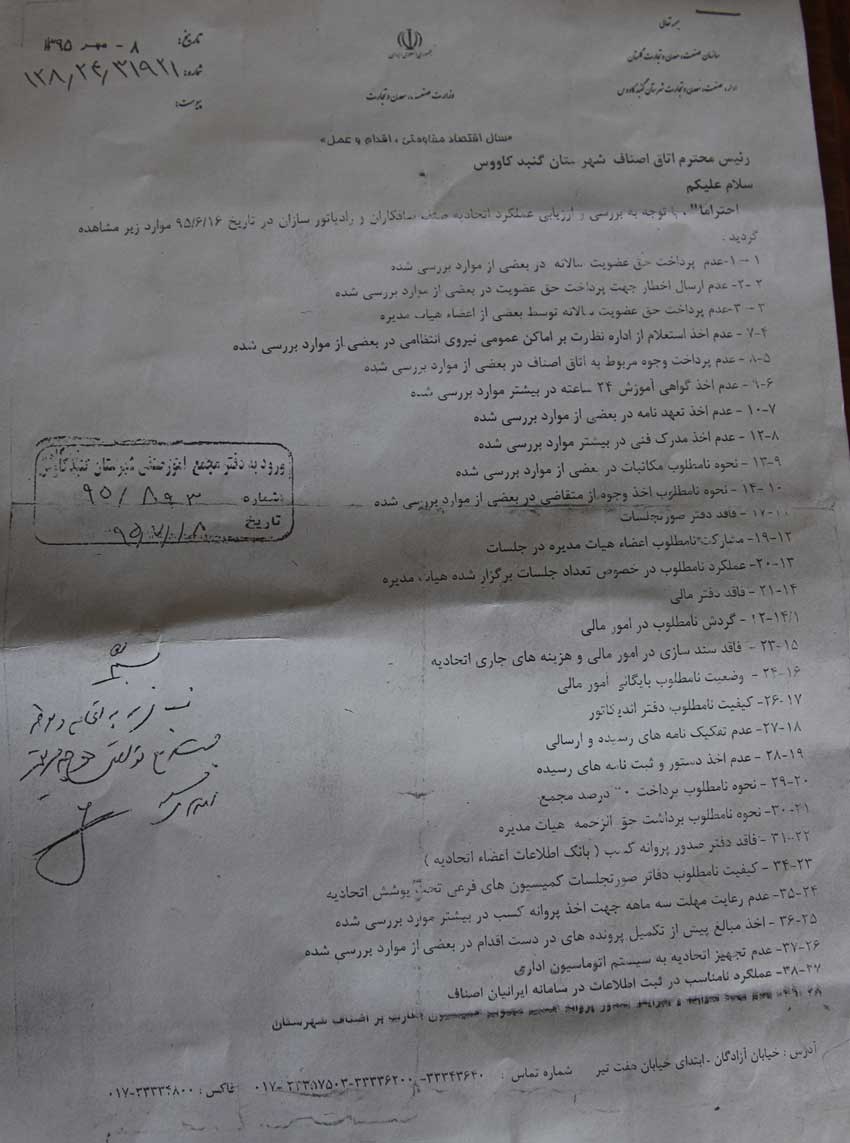 بسمه تعالی
جمهوری اسلامی ایران
سازمان صنعت، معدن و تجارت گلستان
اداره صنعت، معدن و تجارت شهرستان گنبدکاووس
وزارت صنعت، معدن و تجارت
تاریخ: ۸ - مهر ۱۳۹۵
شماره: ۱۲۸٫۲۴٫۳۱۹۲۱
پیوست:
«سال اقتصاد مقاومتی، اقدام و عمل»
رئیس محترم اتاق اصناف شهرستان گنبد کاووس
سلام علیکم
احتراما"، با توجه به بررسی و ارزیابی عملکرد اتحادیه صنف صافکاران و رادیاتور سازان در تاریخ ۹۵/۶/۱۶ موارد زیر مشاهده
گردید.
۱-۱-عدم پرداخت حق عضویت سالانه در بعضی از موارد بررسی شده
۲-۲- عدم ارسال اخطار جهت پرداخت حق عضویت در بعضی از موارد بررسی شده
۳-۳-عدم پرداخت حق عضویت سالانه توسط بعضی از اعضاء هیات مدیره
۷-۴- عدم اخذ استعلام از اداره نظارت بر اماکن عمومی نیروی انتظامی در بعضی از موارد بررسی شده
۸-۵- عدم پرداخت وجوه مربوط به اتاق اصناف در بعضی از موارد بررسی شده
۹-۶- عدم اخذ گواهی آموزش ۲۴ ساعته در بیشتر موارد بررسی شده
۱۰-۷- عدم اخذ تعهد نامه در بعضی از موارد بررسی شده
۱۲-۸- عدم اخذ مدرک فنی در بیشتر موارد بررسی شده
۱۳-۹- نحوه نامطلوب مکاتبات در بعضی از موارد بررسی شده
۱۴-۱۰- نحوه نامطلوب اخذ وجوه از متقاضی در بعضی از موارد بررسی شده
۱۷-۱۱- فاقد دفتر صورتجلسات
۱۹-۱۲- مشارکت نامطلوب اعضاء هیات مدیره در جلسات
۲۰-۱۳- عملکرد نامطلوب در خصوص تعداد جلسات برگزار شده هیات مدیره
۲۱-۱۴- فاقد دفتر مالی
۲۲-۱۴/۱- گردش نامطلوب در امور مالی
۲۳-۱۵- فاقد سند سازی در امور مالی و هزینه های جاری اتحادیه
۲۴-۱۶- وضعیت نامطلوب بایگانی امور مالی
۲۶-۱۷- کیفیت نامطلوب دفتر اندیکاتور
۲۷-۱۸- عدم تفکیک نامه های رسیده و ارسالی
۲۸-۱۹- عدم اخذ دستور و ثبت نامه های رسیده
۲۹-۲۰- نحوه نامطلوب پرداخت درصد مجمع
۳۰-۲۱- نحوه نامطلوب برداشت حق الزحمه هیات مدیره
۳۱-۲۲- فاقد دفتر صدور پروانه کسب ( بانک اطلاعات اعضاء اتحادیه )
۳۴-۲۳- کیفیت نامطلوب دفاتر صورتجلسات کمیسیون های فرعی تحت پوشش اتحادیه
۳۵-۲۴- عدم رعایت مهلت سه ماهه جهت اخذ پروانه کسب در بیشتر موارد بررسی شده
۳۶-۲۵- اخذ مبالغ پیش از تکمیل پرونده های در دست اقدام در بعضی از موارد بررسی شده
۳۷-۲۶- عدم تجهیز اتحادیه به سیستم اتوماسیون اداری
۳۸-۲۷- عملکرد نامناسب در ثبت اطلاعات در سامانه ایرانیان اصناف
بر اصناف شهرستان
آدرس : خیابان آزادگان - ابتدای خیابان هفت تیر شماره تماس : ۳۳۳۴۳۶۴۰-۳۳۳۳۶۲۰۰ ۰۱۷- فاکس : ۰۱۷-۳۳۳۳۴۸۰۰
ورود به دفتر مجمع امور صنفی شهرستان گنبدکاووس
شماره ۹۵/۸۹۳
تاریخ ۹۵/۷/۱۸